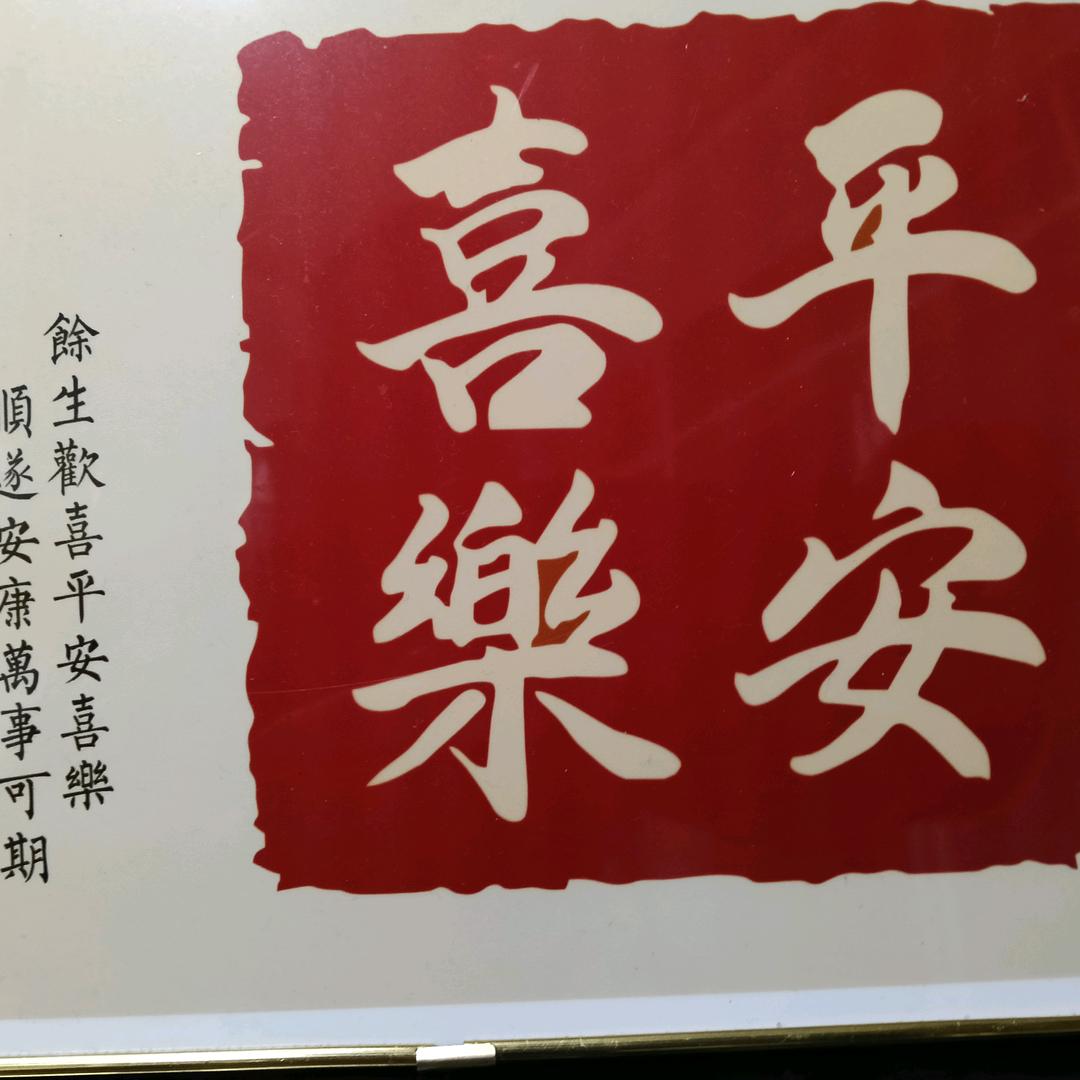 平安
喜樂
餘生歡喜平安喜樂
順遂安康萬事可期